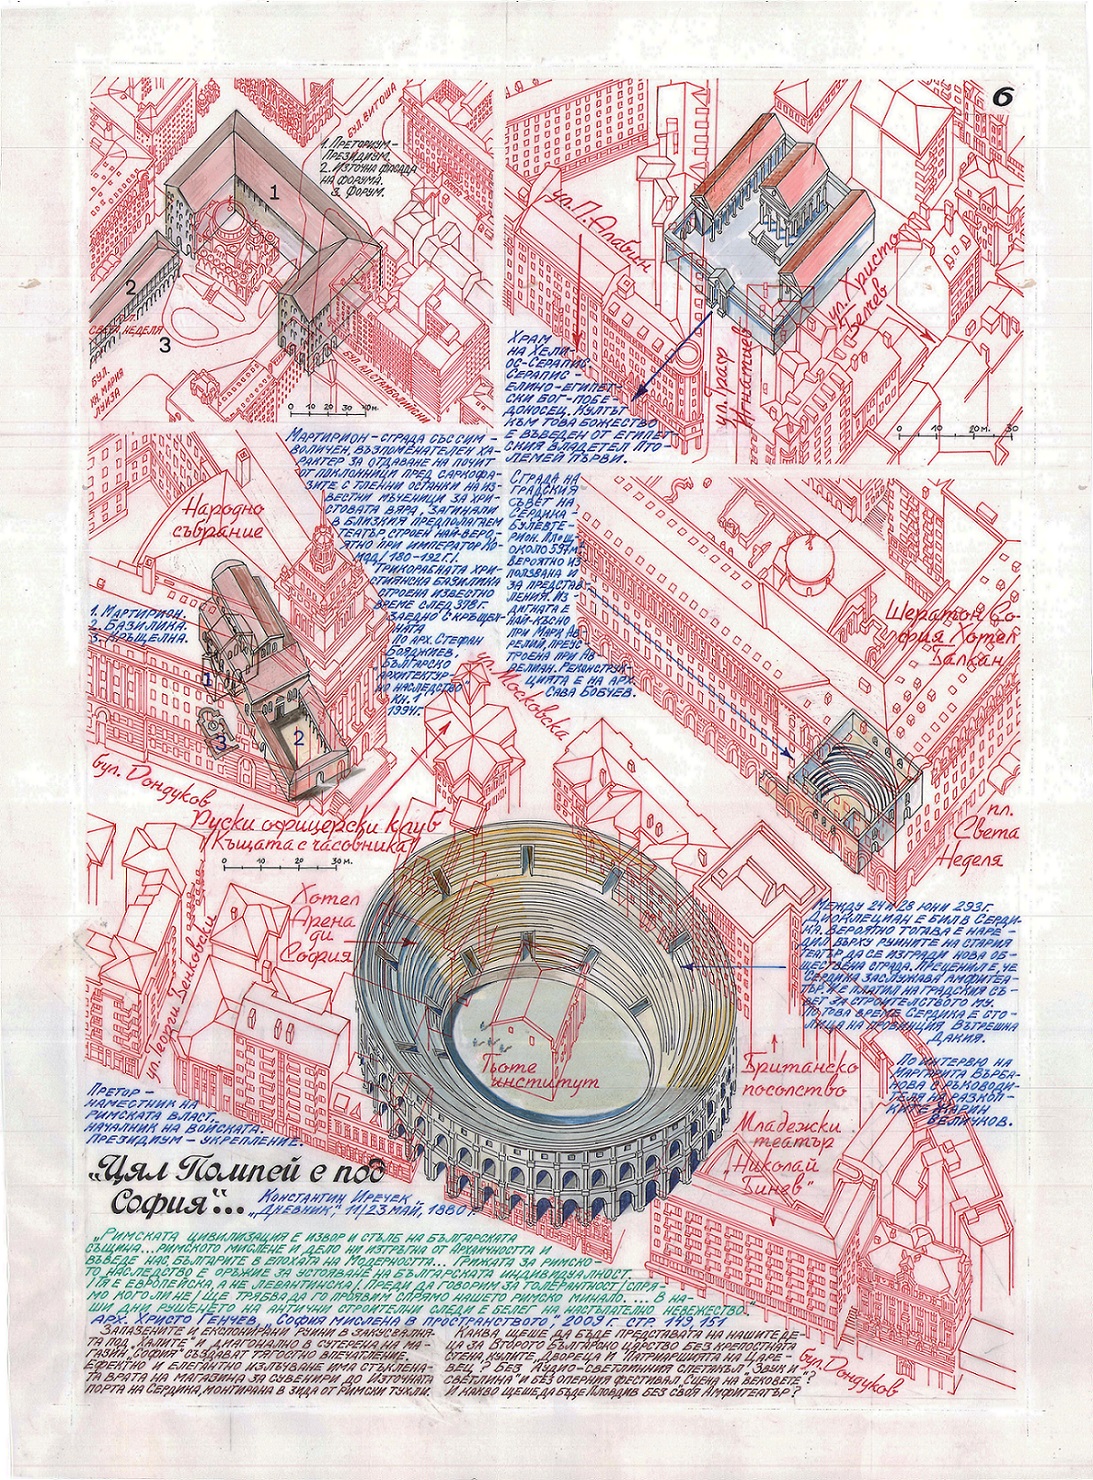 6
БУЛ. ВИТОША
1. Преториум –
Президиум.
2. Източна фасада
на форума.
3. Форум.
1
2
3
СВЕТА НЕДЕЛЯ
БУЛ.
КН. МАРИЯ
ЛУИЗА
БУЛ. АЛ. СТАМБОЛИЙСКИ
0 10 20 30 40м.
ул. П. Алабин
ул. Граф
Игнатиев
ул. Христо
Белчев
Храм
на Хели-
ос-Серапис
Серапис –
елино-египет-
ски бог-побе-
доносец. Култът
към това божество
е въведен от египет-
ския владетел Пто-
лемей Първи.
0 10 20м. 30
Мартирион – сграда със сим-
воличен, възпоменателен ха-
рактер за отдаване на почит
от поклонници пред саркофа-
зите с тленни останки на из-
вестни мъченици за Хри-
стовата вяра, загинали
в близкия предполагаем
театър, строен най-веро-
ятно при император Ко-
мод/ 180-192 г./
Трикорабната хри-
стиянска базилика
строена известно
време след 398 г.
заедно с кръщел-
ната
По арх. Стефан
Бояджиев,
„Българско
архитектур-
но наследство"
кн. 1
1994г.
Народно
събрание
1. Мартирион.
2. Базилика.
3. Кръщелна.
1
2
3
бул. Дондуков
Руски офицерски клуб
/Къщата с часовника/
0 10 20 30м.
ул. Московска
Сграда на
градския
съвет на
Сердика –
Булевте-
рион. Площ
около 597м²
Вероятно из-
ползвана и
за представ-
ления. Из-
дигната е
най-късно
при Марк Ав-
релий, преус-
троена при Ав-
релиан. Реконструк-
цията е на арх.
Сава Бобчев.
Шератон Со-
фия Хотел
Балкан
пл.
Света
Неделя
Хотел
Арена
ди
София
ул. Георги Бенковски
Гьоте
институт
Между 24 и 28 юни 293г.
Диоклециан е бил в Серди-
ка. Вероятно тогава е наре-
дил върху руините на стария
театър да се изгради нова об-
ществена сграда. Преценил е, че
Сердика заслужава амфитеа-
тър. Же платил на градския съ-
вет за строителството му.
По това време Сердика е сто-
лица на провинция Вътрешна
Дакия.
По интервю на
Маргарита Върба-
нова с ръководи-
теля на разкоп-
ките Жарин
Величков.
Британско
посолство
Младежки
театър
„Николай
Бинев"
Претор –
наместник на
римската власт,
началник на войската.
Президиум – укрепление.
„Цял Помпей е под
София"...
Константин Иречек
„Дневник", 11/23 май, 1880 г.
„Римската цивилизация е извор и стълб на българската
същина... римското мислене и дело ни изтръгна от Архаичността и
въведе нас българите в епохата на Модерността... Грижата за римско-
то наследство е оръжие за устояване на българската индивидуалност
/тя е европейска, а не левантинска/. Преди да говорим за толерантност /спря-
мо кого ли не/ ще трябва да го проявим спрямо нашето римско минало. ... В на-
ши дни рушенето на антични строителни следи е белег на настъпателно невежество."
Арх. Христо Генчев, „София мислена в пространството", 2009 г. стр. 149, 151
Запазените и експонирани руини в закусвалня-
та под „Халите" и диагонално в сутерена на ма-
газин „София" създават трайно впечатление.
Ефектно и елегантно излъчване има стъклена-
та врата на магазина за сувенири до Източната
порта на Сердика, монтирана в зида от римски тухли.
Каква щеше да бъде представата на нашите де-
ца за Второто Българско царство без крепостната
стена, кулите, Двореца и Патриаршията на Царе-
вец? Без Аудио-светлинния спектакъл „Звук и
светлина" и без оперния фестивал „Сцена на вековете"?
И какво щеше да бъде Пловдив без своя Амфитеатър?
бул. Дондуков